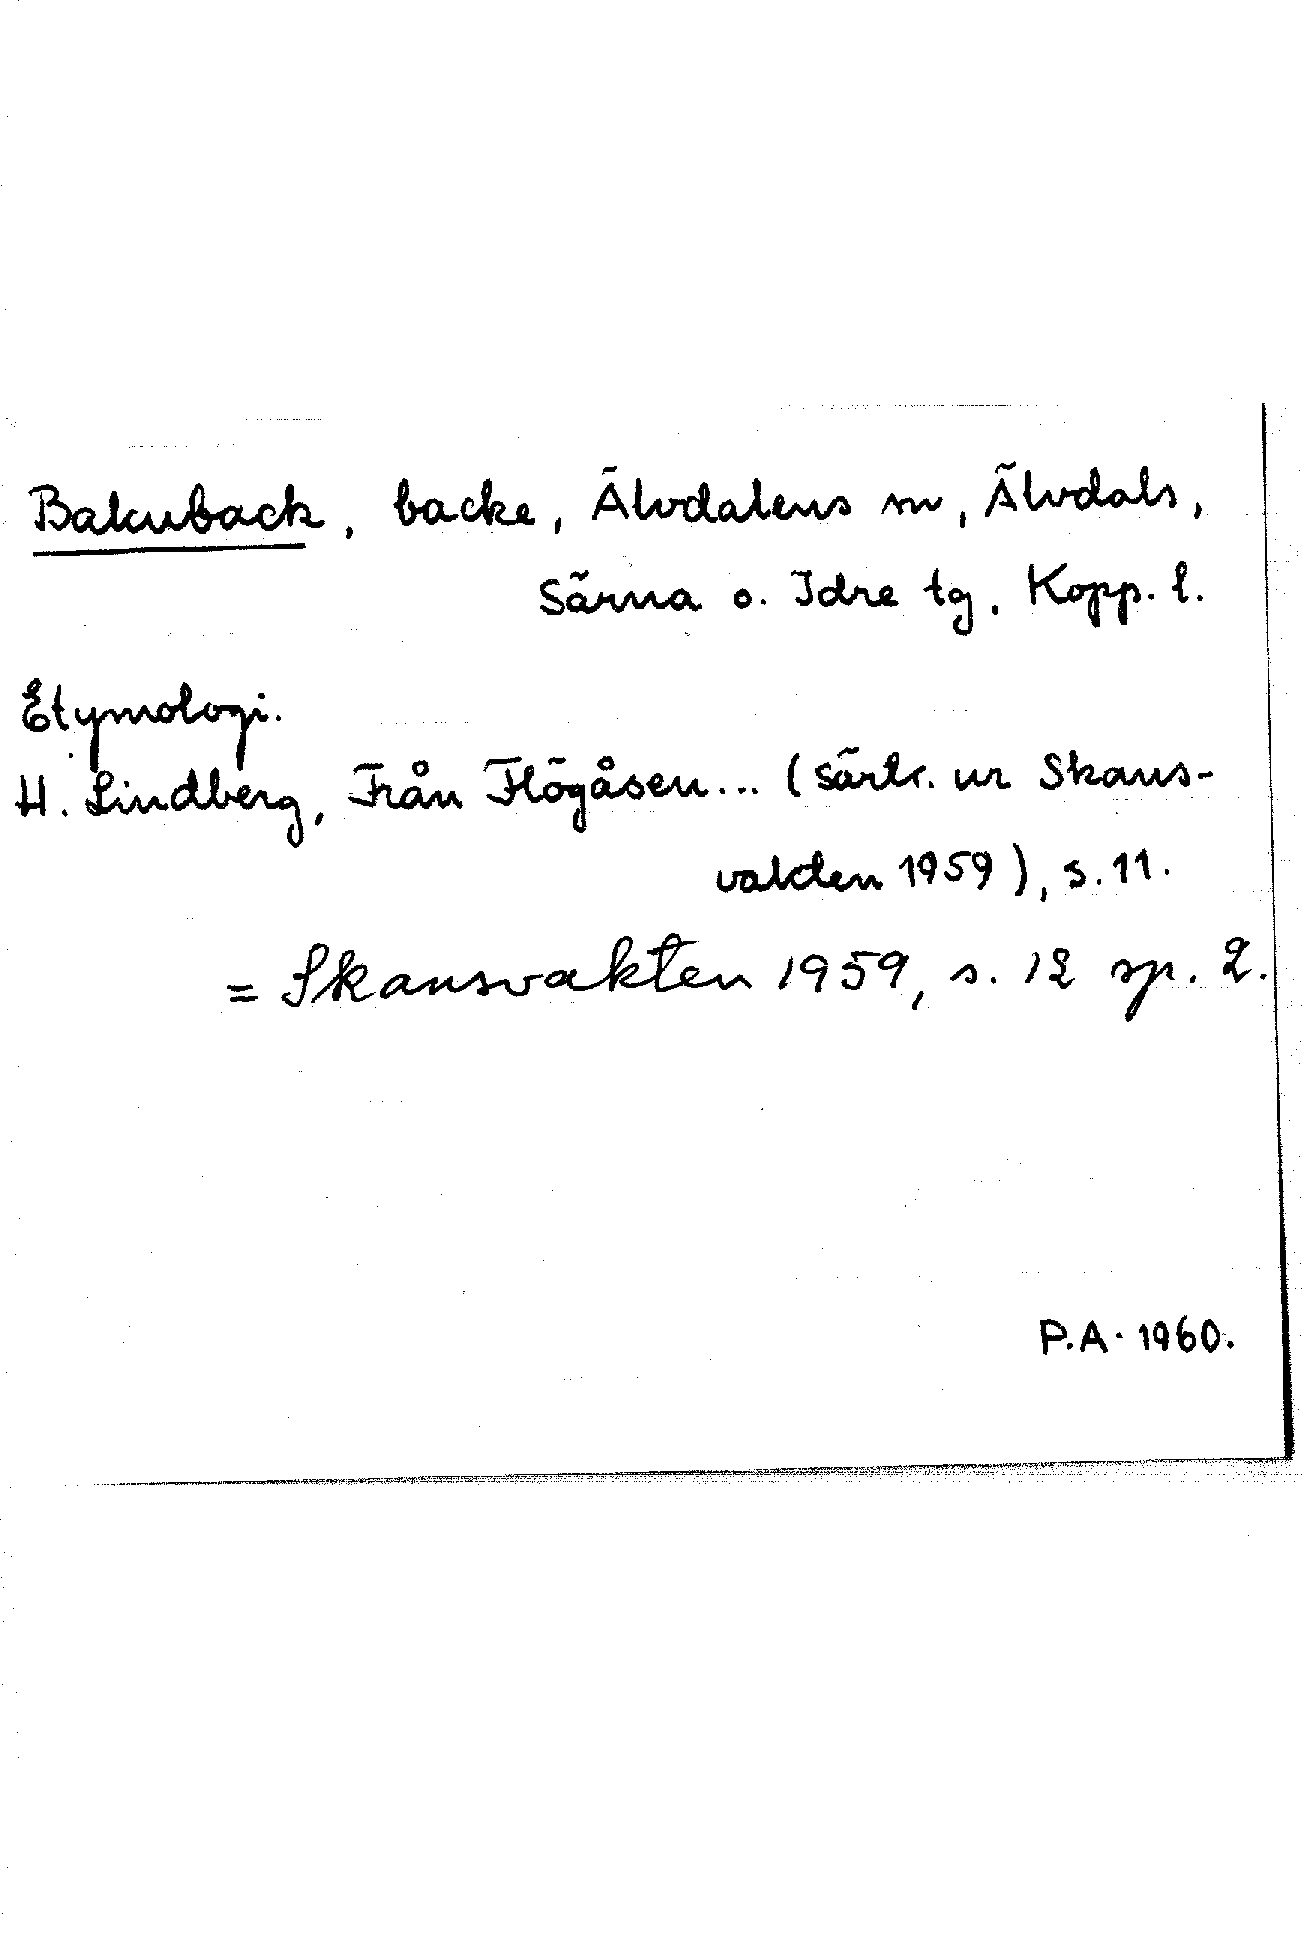 Bakuback, backe, Älvdalens sn, Älvdals,
Särna o. Idre tg, Kopp. l.
Etymologi.
H. Lindberg, Från Flögåsen... (särtr. ur Skans-
vakten 1959), s. 11.
= Skansvakten 1959, s. 12 sp. 2.
P.A. 1960.